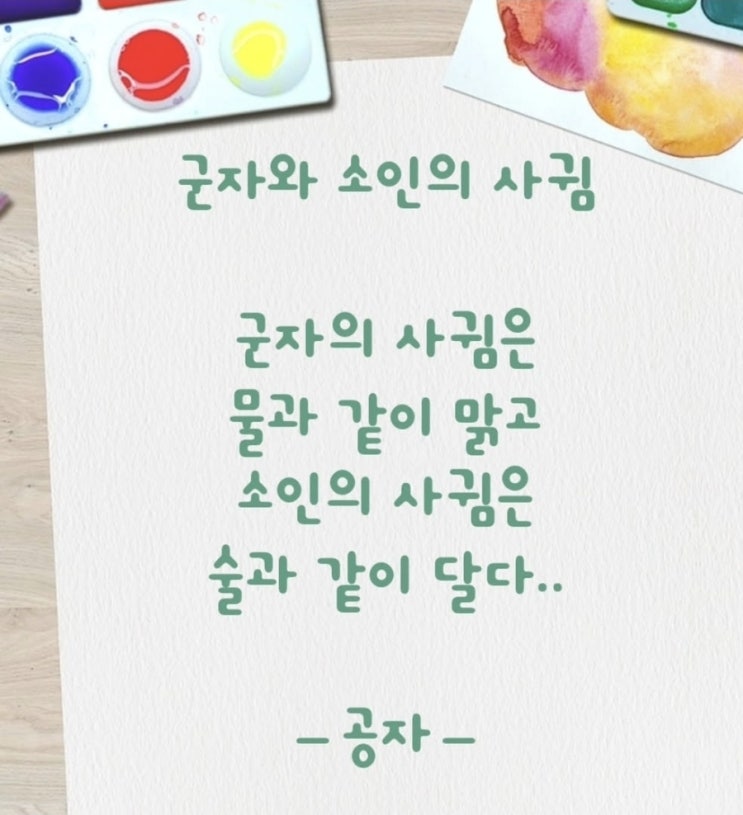 군자와 소인의 사귐
군자의 사귐은
물과 같이 맑고
소인의 사귐은
술과 같이 달다..
– 공자 –